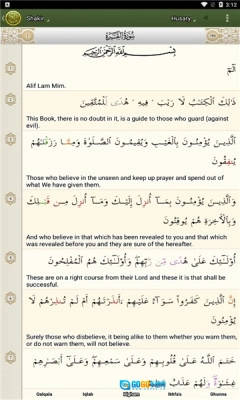 3:12
Shakir
Husary
سُورَةُ الْبَقَرَةِ
بِسْمِ اللَّهِ الرَّحْمَٰنِ الرَّحِيمِ
الٓمٓ
Alif Lam Mim.
ذَٰلِكَ الْكِتَابُ لَا رَيْبَ ۛ فِيهِ ۛ هُدًى لِّلْمُتَّقِينَ
This Book, there is no doubt in it, is a guide to those who guard (against
evil).
الَّذِينَ يُؤْمِنُونَ بِالْغَيْبِ وَيُقِيمُونَ الصَّلَوٰةَ وَمِمَّا رَزَقْنَٰهُمْ
يُنفِقُونَ
Those who believe in the unseen and keep up prayer and spend out
of what We have given them.
وَالَّذِينَ يُؤْمِنُونَ بِمَآ أُنزِلَ إِلَيْكَ وَمَآ أُنزِلَ مِن قَبْلِكَ
وَبِالْآخِرَةِ هُمْ يُوقِنُونَ
And who believe in that which has been revealed to you and that which
was revealed before you and they are sure of the hereafter.
أُولَٰٓئِكَ عَلَىٰ هُدًى مِّن رَّبِّهِمْ ۖ وَأُولَٰٓئِكَ هُمُ الْمُفْلِحُونَ
These are on a right course from their Lord and these it is that shall be
successful.
إِنَّ الَّذِينَ كَفَرُوا سَوَآءٌ عَلَيْهِمْ ءَأَنذَرْتَهُمْ أَمْ لَمْ تُنذِرْهُمْ لَا
يُؤْمِنُونَ
Surely those who disbelieve, it being alike to them whether you warn them,
or do not warn them, will not believe.
خَتَمَ اللَّهُ عَلَىٰ قُلُوبِهِمْ وَعَلَىٰ سَمْعِهِمْ ۖ وَعَلَىٰٓ أَبْصَٰرِهِمْ
غِشَٰوَةٌ ۖ وَلَهُمْ عَذَابٌ
Qalqala Iqlab Idgham Ikhfa'a Ghunna